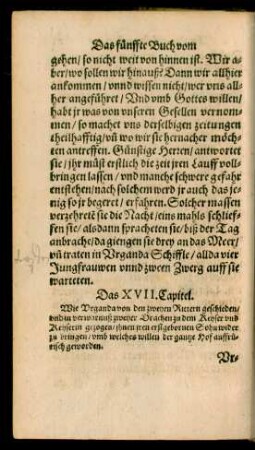 Das fünffte Buch vom
gehen/ so nicht weit von hinnen ist. Wir a-
ber/ wo sollen wir hinauß? Dann wir allhier
ankommen/ vnnd wissen nicht/ wer vns all-
her angeführet/ Vnd vmb Gottes willen/
habt jr was von vnseren Gesellen vernom-
men/ so machet vns derselbigen zeitungen
theilhafftig/ vñ wo wir sie hernacher möch-
ten antreffen. Günstige Herren/ antwortet
sie/ jhr müst erstlich die zeit jren Lauff voll-
bringen lassen/ vnnd manche schwere gefahr
entstehen/ nach solchem werd jr auch das je-
nig so jr begeret/ erfahren. Solcher massen
verzehretē sie die Nacht/ eins mahls schlief-
fen sie/ alsdann spracheten sie/ biß der Tag
anbrach/ da giengen sie drey an das Meer/
vñ traten in Vrganda Schiffle/ allda vier
Jungfrauwen vnnd zween Zwerg auff sie
warteten.
Das XVII. Capitel.
Wie Vrganda von den zweyen Rittern geschieden/
vnd in verwarnuß zweyer Drachen zu dem Keyser vnd
Keyserin gezogen/ jhnen jren erstgebornen Sohn wider
zu bringen/ vmb welches willen der gantze Hof auffrü-
risch geworden.
Vr-